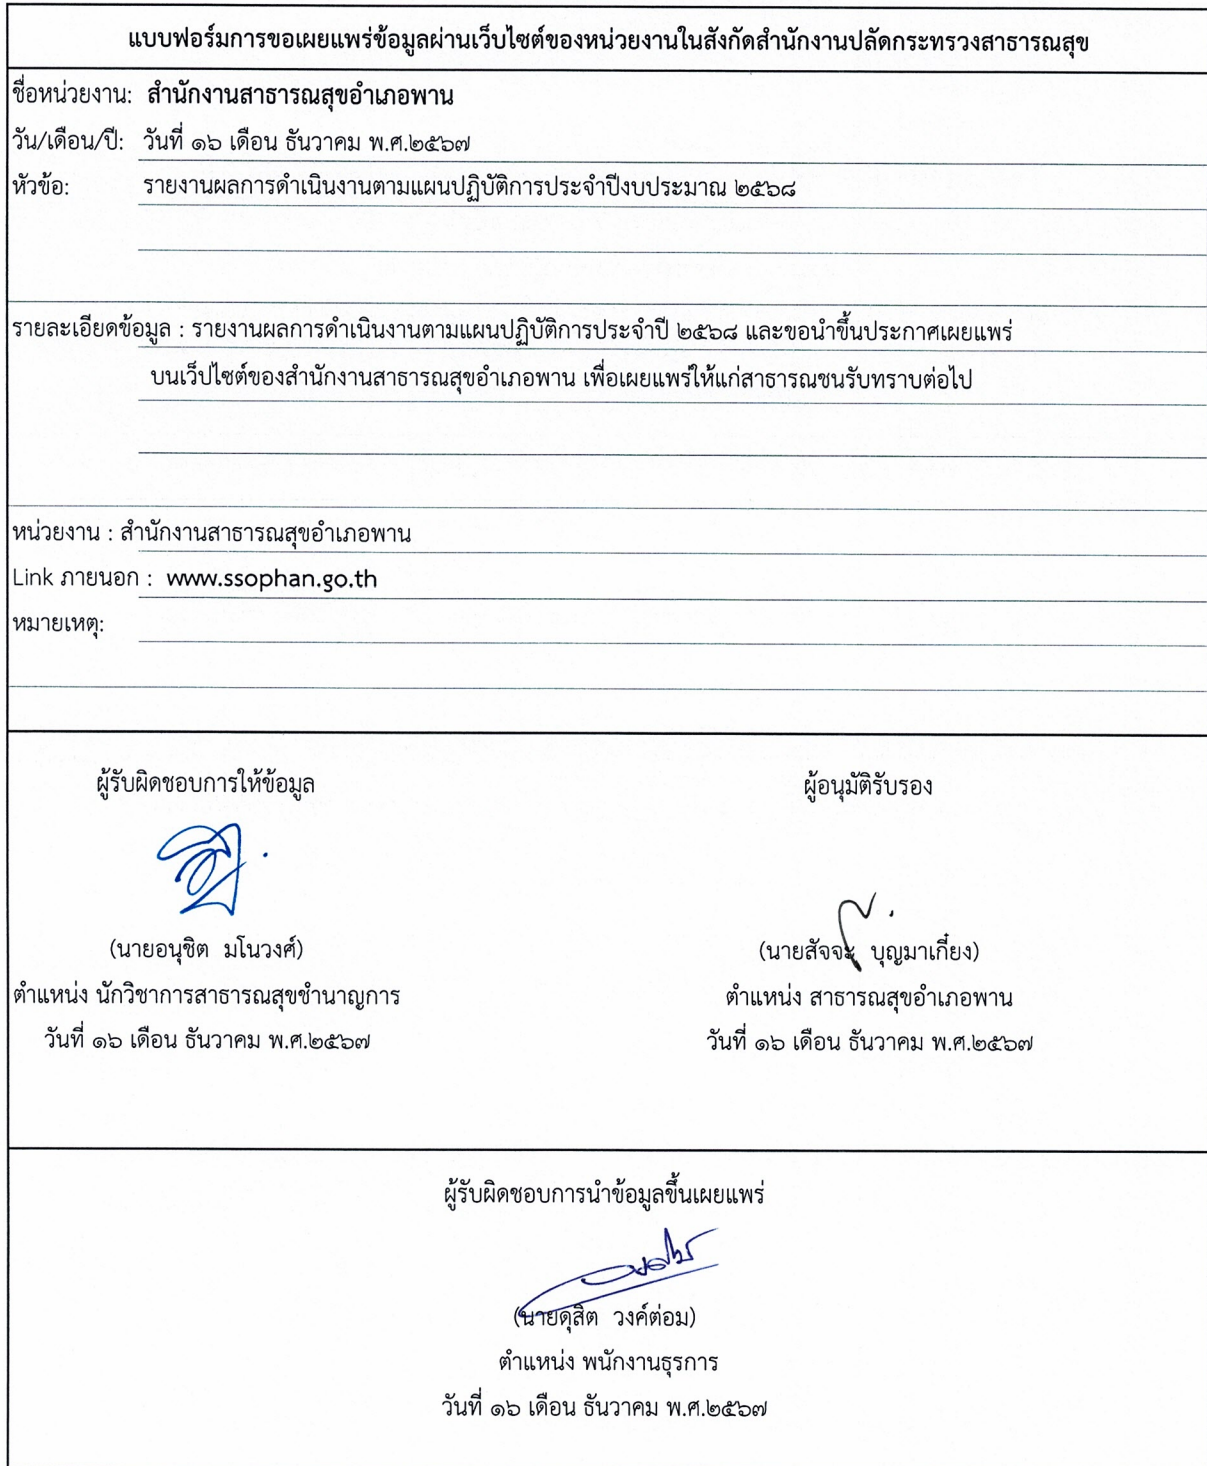 แบบฟอร์มการขอเผยแพร่ข้อมูลผ่านเว็บไซต์ของหน่วยงานในสังกัดสำนักงานปลัดกระทรวงสาธารณสุข
ชื่อหน่วยงาน: สำนักงานสาธารณสุขอำเภอพาน
วัน/เดือน/ปี: วันที่ ๑๖ เดือน ธันวาคม พ.ศ.๒๕๖๗
หัวข้อ: รายงานผลการดำเนินงานตามแผนปฏิบัติการประจำปีงบประมาณ ๒๕๖๘
รายละเอียดข้อมูล : รายงานผลการดำเนินงานตามแผนปฏิบัติการประจำปี ๒๕๖๘ และขอนำขึ้นประกาศเผยแพร่
บนเว็ปไซต์ของสำนักงานสาธารณสุขอำเภอพาน เพื่อเผยแพร่ให้แก่สาธารณชนรับทราบต่อไป
หน่วยงาน : สำนักงานสาธารณสุขอำเภอพาน
Link ภายนอก : www.ssophan.go.th
หมายเหตุ:
ผู้รับผิดชอบการให้ข้อมูล
(นายอนุชิต มโนวงศ์)
ตำแหน่ง นักวิชาการสาธารณสุขชำนาญการ
วันที่ ๑๖ เดือน ธันวาคม พ.ศ.๒๕๖๗
ผู้อนุมัติรับรอง
(นายสัจจะ บุญมาเกี๋ยง)
ตำแหน่ง สาธารณสุขอำเภอพาน
วันที่ ๑๖ เดือน ธันวาคม พ.ศ.๒๕๖๗
ผู้รับผิดชอบการนำข้อมูลขึ้นเผยแพร่
(นายดุสิต วงค์ต่อม)
ตำแหน่ง พนักงานธุรการ
วันที่ ๑๖ เดือน ธันวาคม พ.ศ.๒๕๖๗